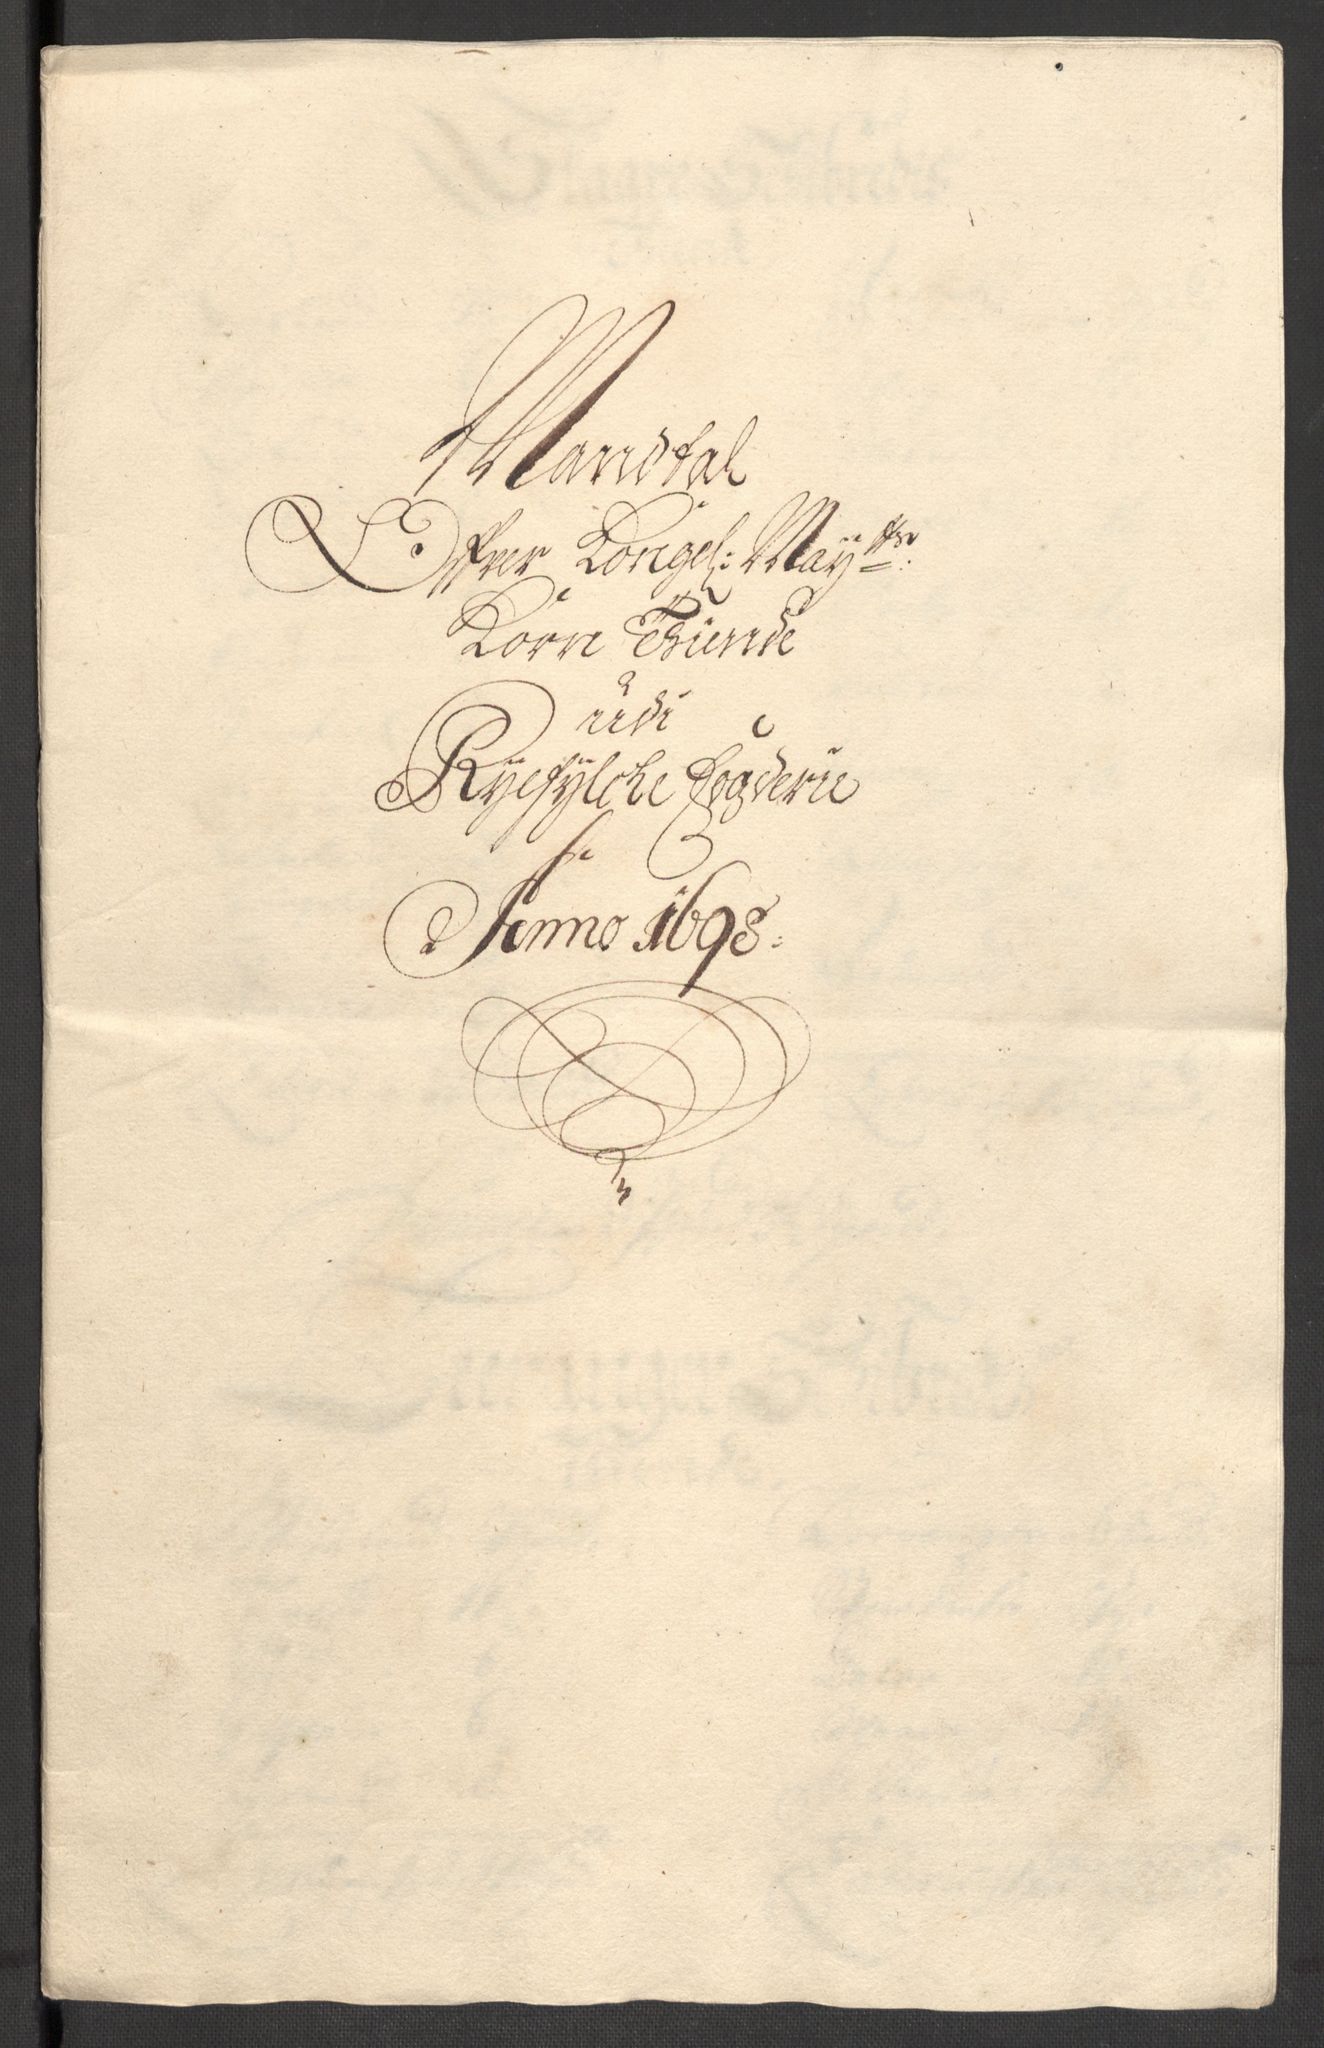 Mandtal
Offver Kongel: Maÿtts:
Korn Thiende
udi
Ryefylche Fogderie
Anno 1698: